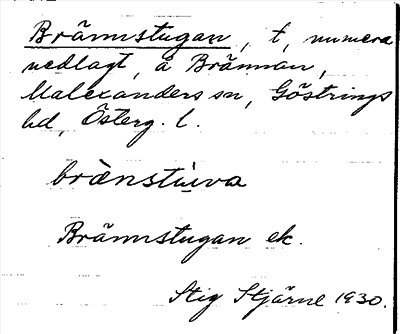 Brännstugan, t, numera
nedlagt, å Brännan,
Malexanders sn, Göstrings
hd, Österg. l.
brànstùva
Brännstugan ek.
Stig Stjärne 1930.